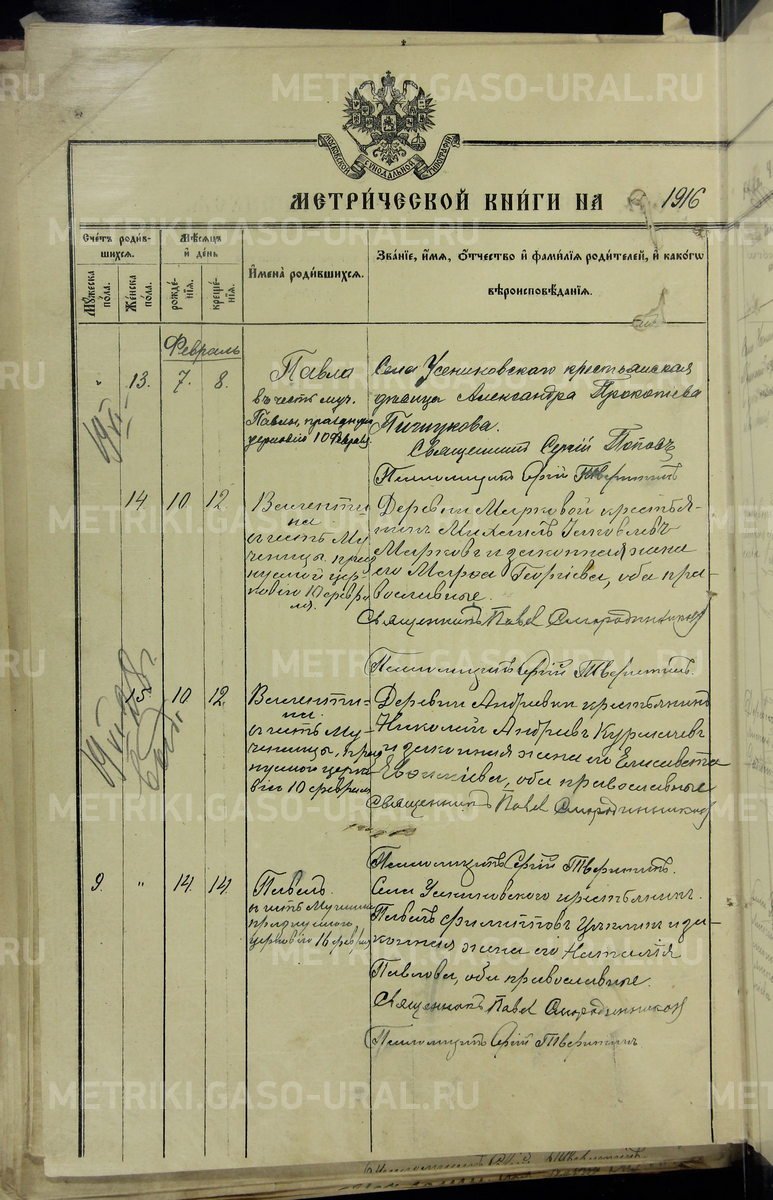 METRIKI.GASO-URAL.RU
МОСКОВСКОЙ СѴНОДАЛЬНОЙ ТИПОГРАФІИ
МЕТРИ́ЧЕСКОЙ КНИ́ГИ НА 1916
Сче́тъ роди́в-
шихсѧ.
Мꙋ́жеска по́ла.
Же́нска по́ла.
Мѣ́сѧцъ
и҆ де́нь
рожде́-
нїѧ.
креще́-
нїѧ.
И҆мена̀ роди́вшихсѧ.
Зва́нїе, и҆́мѧ, ѻ҆́тчество и҆ фами́лїѧ роди́телей, и҆ како́гѡ
вѣроисповѣ́данїѧ.
Февраль
" 13. 7. 8.
Павла
въ честь муч.
Павлы, празднуем
церковію 10 Февраля
Села Усениновскаго крестьянская
дѣвица Александра Прокопіева
Пичугова.
Священникъ Сергій Поповъ
Псаломщикъ Сергій Тверитинъ
14 10 12.
Валенти
на
въ честь Му-
ченицы, празд
нуемой цер-
ковію 10 февра
ля.
Деревни Марковой крестья-
нинъ Михаилъ Іаковлевъ
Марковъ и законная жена
его Марѳа Георгіева, оба пра-
вославные.
Священникъ Павелъ Смородинниковъ
Псаломщикъ Сергій Тверитинъ.
15. 10 12.
Валенти-
на
въ честь Му-
ченицы, празд
нуемой церко
вію 10 февраля
Деревни крестьянинъ
Николай Андреевъ Курмачевъ
и законная жена его Елисавета
Евѳиміева, оба православные
Священникъ Павелъ Смородинниковъ
Псаломщикъ Сергій Тверитинъ.
9. " 14. 14.
Павелъ.
въ честь Мученика
празднуемаго
церковію 16 февраля
Села Усениновскаго крестьянинъ
Павелъ Филипповъ и за-
конная жена его Наталія
Павлова, оба православные.
Священникъ Павелъ Смородинниковъ
Псаломщикъ Сергій Тверитинъ